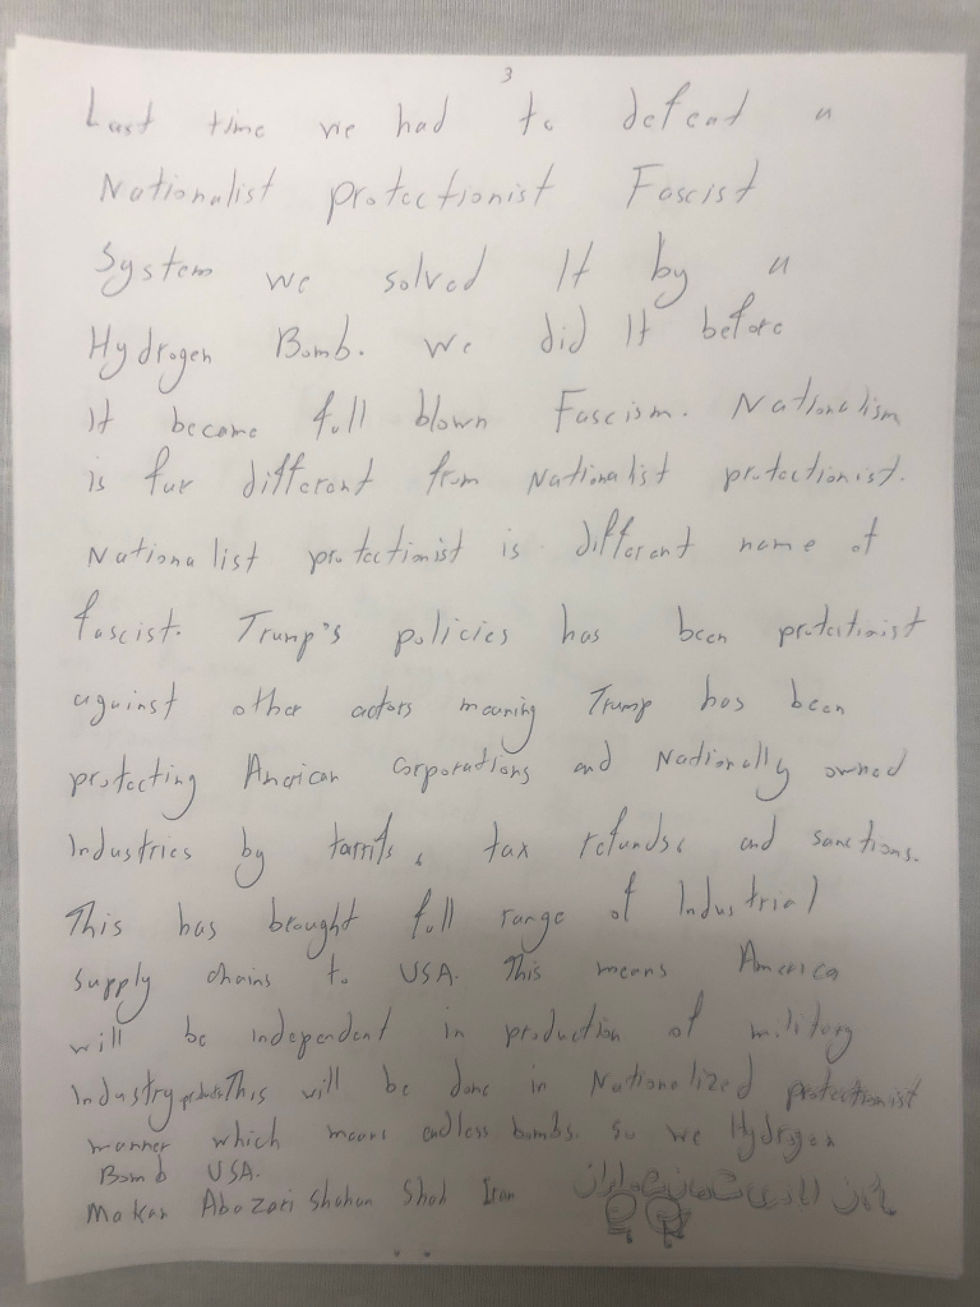 3
Last time we had to defeat a
Nationalist protectionist Fascist
System we solved It by a
Hydrogen Bomb. We did It before
It became full blown Fascism. Nationalism
is far different from Nationalist protectionist.
Nationalist protectionist is different name of
fascist. Trump's policies has been protectionist
against other actors meaning Trump has been
protecting American Corporations and Nationally owned
Industries by tarrifs, tax refunds, and sanctions.
This has brought full range of Industrial
supply chains to USA. This means America
will be independent in production of military
Industry This will be done in Nationalized protectionist
manner which means endless bombs. So we Hydrogen
Bomb USA.
Makan Abazari Shahan Shah Iran ماكان اباذری شاهان شاه ایران